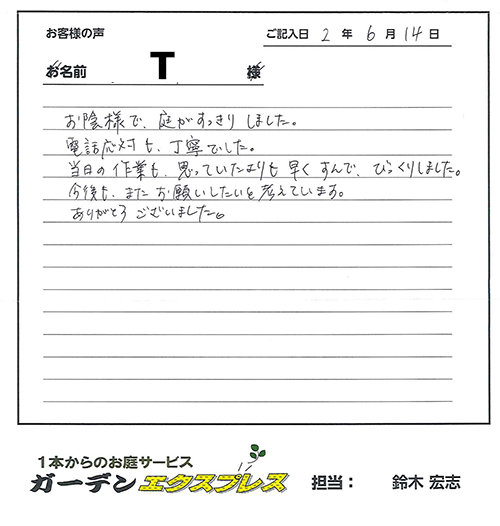 お客様の声
ご記入日 2 年 6 月 14 日
お名前 T 様
お陰様で、庭がすっきりしました。
電話応対も、丁寧でした。
当日の作業も、思っていたよりも早くすんで、びっくりしました。
今後も、またお願いしたいと考えています。
ありがとうございました。
1本からのお庭サービス
ガーデンエクスプレス 担当： 鈴木 宏志